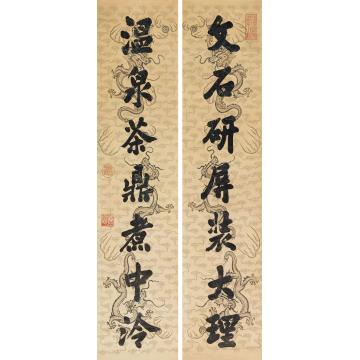 文石研屏装大理
温泉茶鼎煮中泠